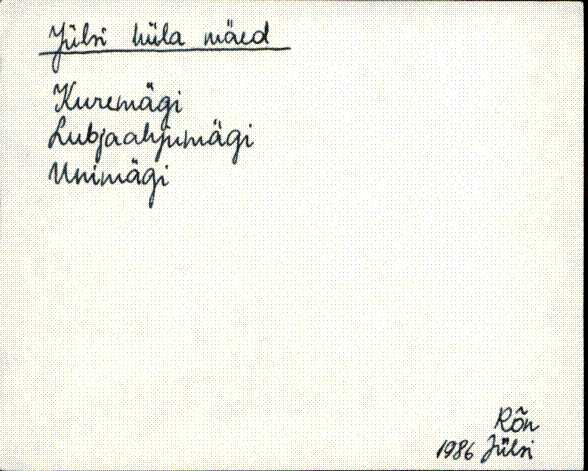 Jülsi küla mäed
Kuremägi
Lubjaahjumägi
Unimägi
Rõn
1986 Jülsi